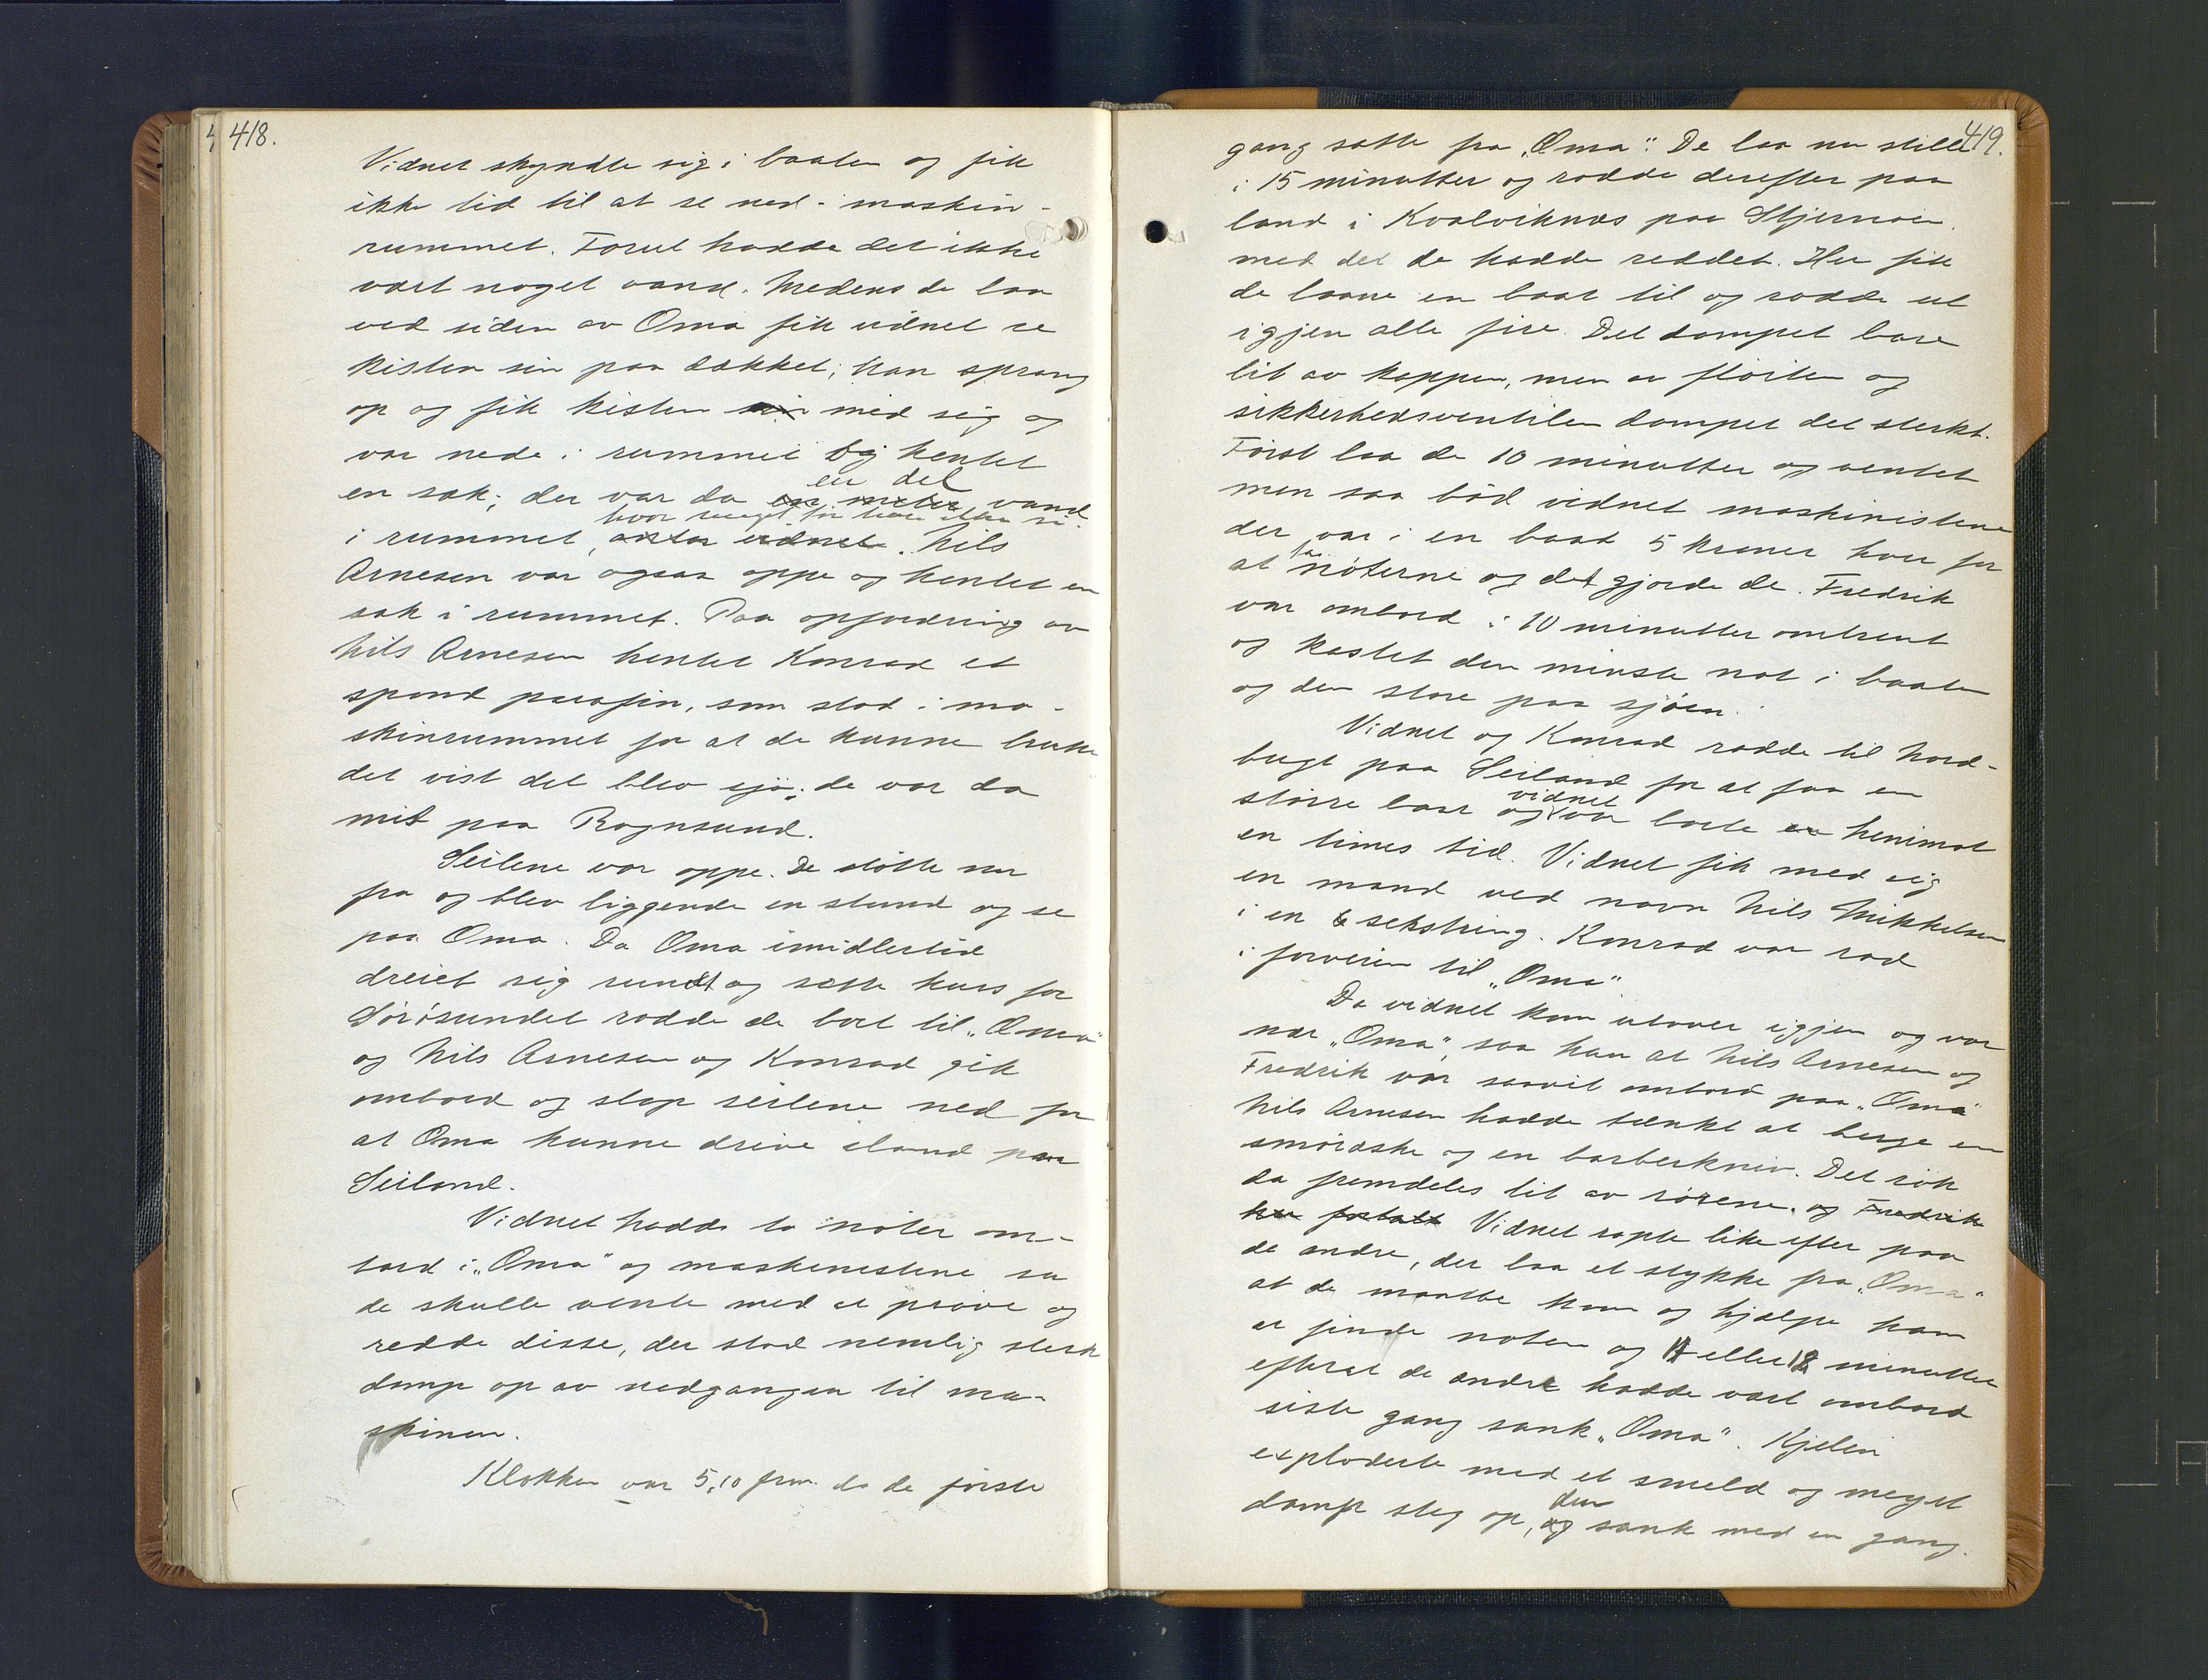 418.
Vidnet skyndte sig i baaten og fik
ikke tid til at se ned i maskin-
rummet. Forut hadde det ikke
vært noget vand. Medens de laa
ved siden av Oma fik vidnet se
kisten sin paa dækket; han sprang
op og fik kisten sin med sig og
var nede i rummet og hentet
en sæk; der var da en meter vand
en del
i rummet, antar vidnet. Nils
hvor meget tør han ikke si.
Arnesen var ogsaa oppe og hentet en
sæk i rummet. Paa opfordring av
Nils Arnesen hentet Konrad et
spand parafin, som stod i ma-
skinrummet for at de kunne bruke
det vist det blev sjø; de var da
mit paa Rognsund.
Seilene var oppe. De støtte nu
fra og blev liggende en stund og se
paa Oma. Da Oma imidlertid
dreiet sig rundt og satte kurs for
Sørøsundet rodde de bort til "Oma"
og Nils Arnesen og Konrad gik
ombord og slap seilene ned for
at Oma kunne drive iland paa
Seiland.
Vidnet hadde to nøter om-
bord i "Oma" og maskinistene sa
de skulle vente med at prøve og
redde disse, der stod nemlig sterk
damp op av nedgangen til ma-
skinen.
Klokken var 5,10 frm. da de første
419.
gang satte fra "Oma". De laa nu stille
i 15 minutter og rodde derefter paa
land i Kvalviknæs paa Stjernøen
med det de hadde reddet. Her fik
de laane en baat til og rodde ut
igjen alle fire. Det dampet bare
lit av kappen, men av fløiten og
sikkerhedsventilen dampet det sterkt.
Først laa de 10 minutter og ventet
men saa bød vidnet maskinistene
der var i en baat 5 kroner hver for
at ta nøterne og det gjorde de. Fredrik
var ombord i 10 minutter omtrent
og kastet den minste not i baaten
og den store paa sjøen.
Vidnet og Konrad rodde til Nord-
bugt paa Seiland for at faa en
større baat og vidnet var borte en henimot
en times tid. Vidnet fik med sig
en mand ved navn Nils Mikkelsen
i en 6 sekstring. Konrad var rod
i forveien til "Oma"
Da vidnet kom utover igjen og var
nær "Oma", saa han at Nils Arnesen og
Fredrik var saavit ombord paa "Oma"
Nils Arnesen hadde tænkt at berge en
smøræske og en barberkniv. Det røk
da fremdeles lit av rørene. og Fredrik
har fortalt Vidnet ropte like efter paa
de andre, der laa et stykke fra "Oma"
at de maatte kom og hjælpe ham
at finde noten og eller minutter
efterat de andre hadde vært ombord
siste gang sank "Oma". Kjelen
exploderte med et smeld og meget
damp steg op, og den sank med en gang.